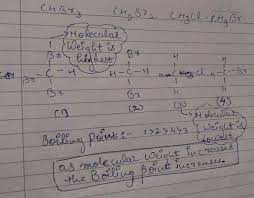 CHBr3 CH2Br2 CH3Cl CH3Br
Molecular
Weight is
highest
Br
Br
H
H
Br - C - H
H - C - H
Br
Br
H
H
(2)
(3)
(4)
Molecular
Weight is
lowest
Boiling Point :- 1>2>4>3
as molecular weight increases
the Boiling point increases.